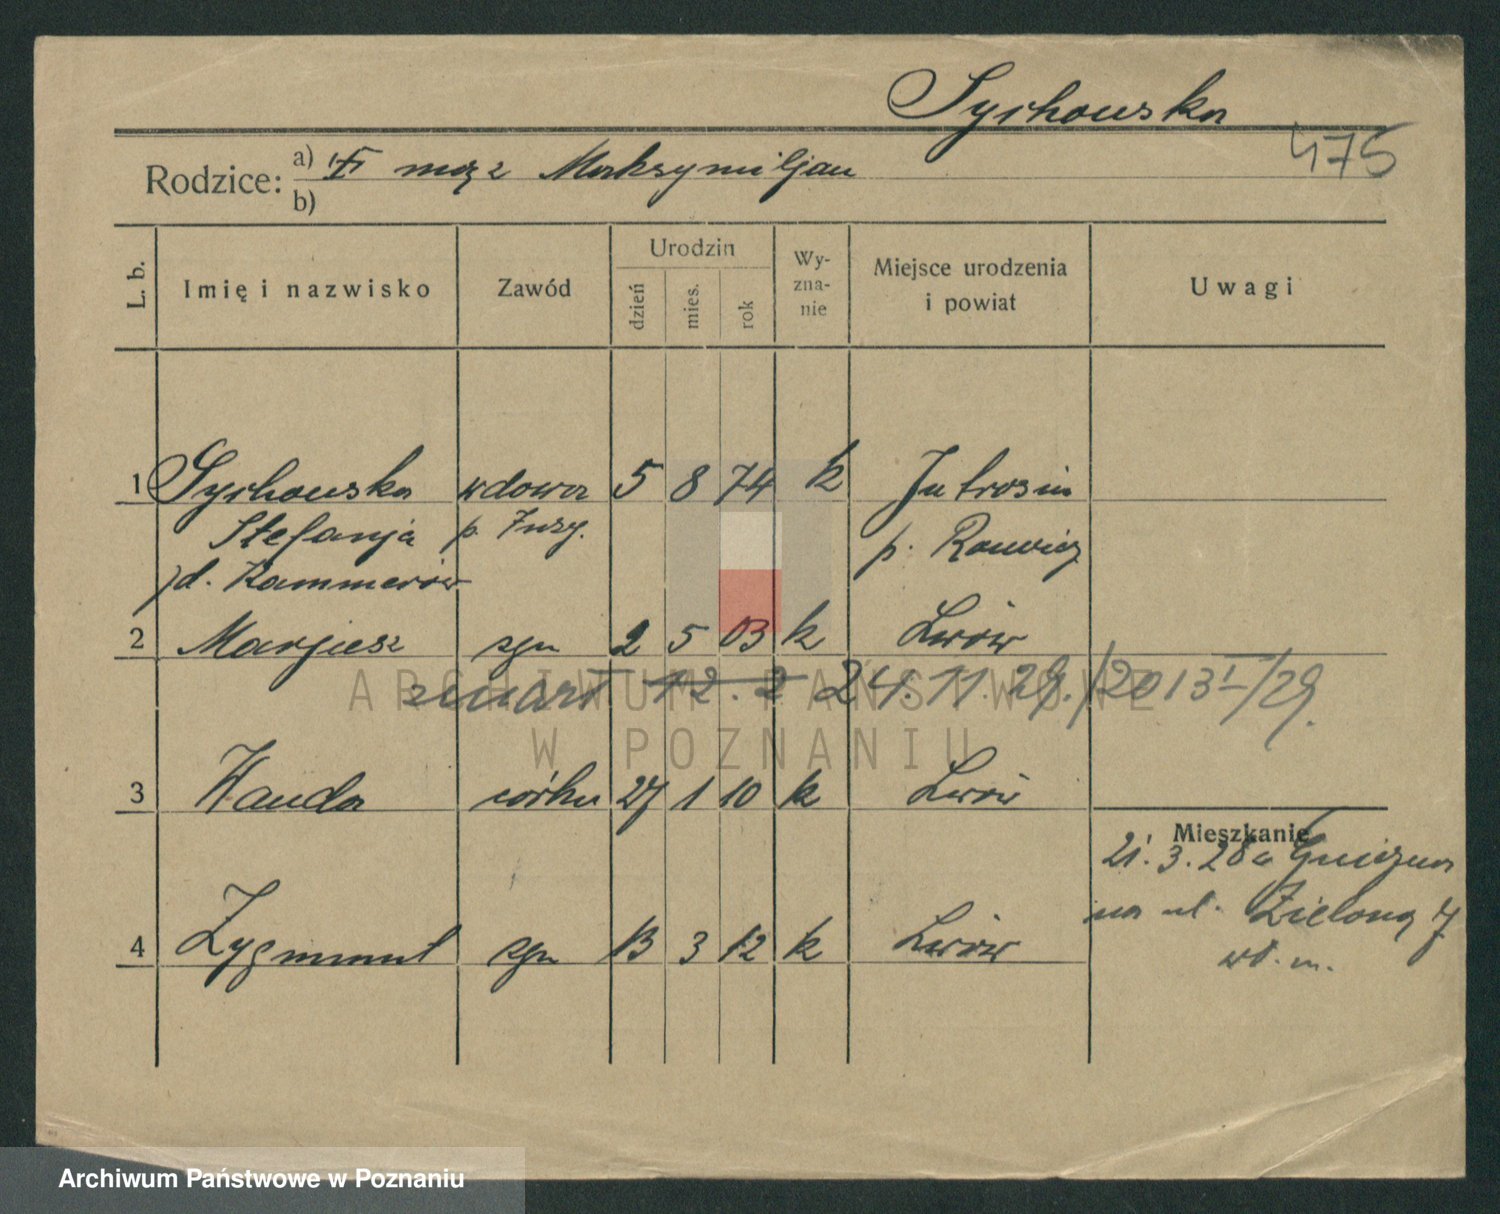 Sychowska
475
Rodzice: a) mąż Maksymiljan
b)
L. b. Imię i nazwisko Zawód Urodzin dzień mies. rok Wy-zna-nie Miejsce urodzenia i powiat Uwagi
1 Sychowska wdowa 5 8 74 k Jutrosin
Stefanja p. p. Rawicz
d. Kammerów
2 Marjusz syn 2 5 03 k Lwów
zmarł 12. 2 24.11.29./2013 I/29.
3 Wanda córka 27 1 10 k Lwów
Mieszkanie
21. 3. 28 a Gniezna
na ul. Zieloną 7
4 Zygmunt syn 13 3 12 k Lwów
wł. m.
ARCHIWUM PAŃSTWOWE
W POZNANIU
Archiwum Państwowe w Poznaniu